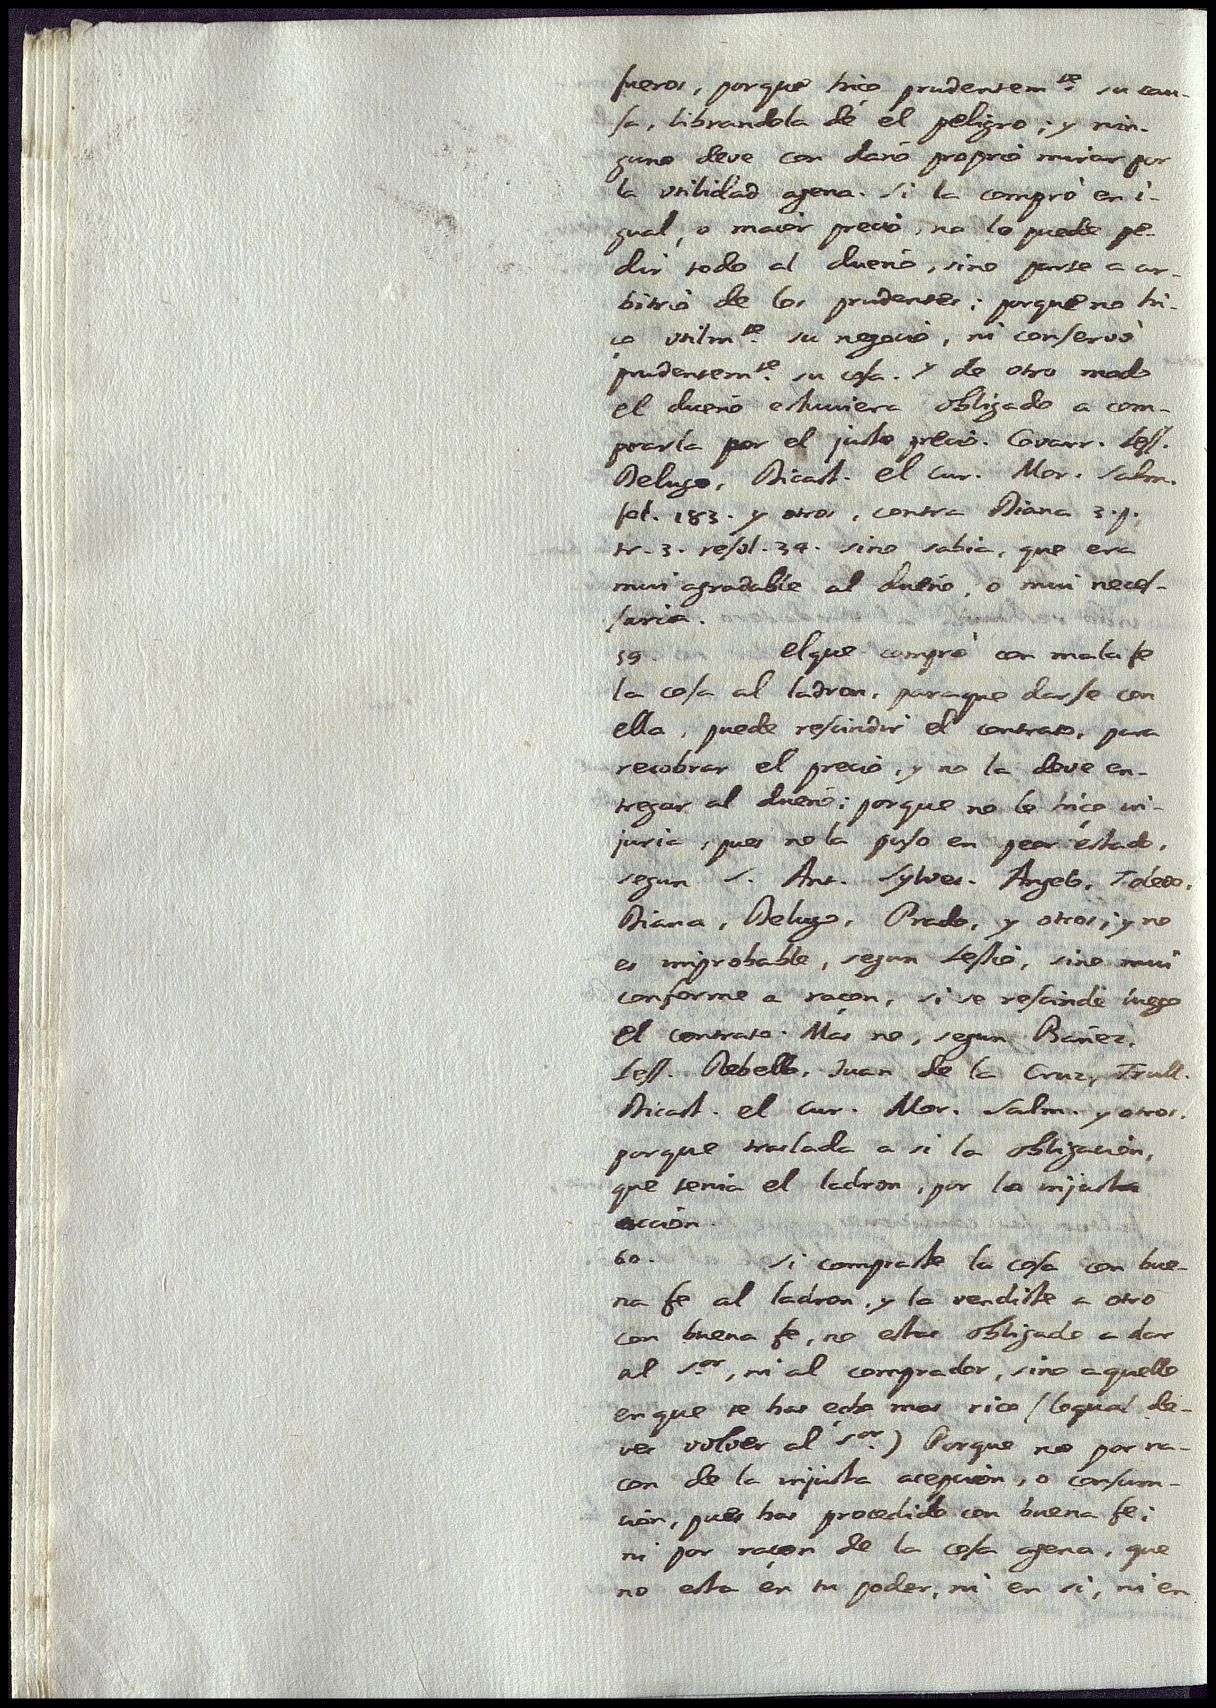 fueros, porque hiço prudentem.te su cau-
sa, librandola de el peligro; y nin-
guno deve con daño proprio mirar por
la utilidad agena. Si la compró en i-
gual, o maior precio, no lo puede pe-
dir todo al dueño, sino parte a ar-
bitrio de los prudentes; porque no hi-
ço utilm.te su negocio, ni conservó
prudentem.te su cosa. Y de otro modo
el dueño estuviera obligado a com-
prarla por el justo precio. Covarr. Less.
Delugo, Dicast. el Cur. Mor. Salm.
fol. 183. y otros, contra Diana 3. p.
tr. 3. resol. 34. sino sabia, que era
mui agradable al dueño, o mui neces-
saria.
59. El que compró con mala fe
la cosa al ladron, paraque darse con
ella, puede rescindir el contrato, para
recobrar el precio, y no la deve en-
tregar al dueño; porque no le hiço in-
juria, pues no la puso en peor estado,
segun S. Ant. Sylves. Angelo, Toledo,
Diana, Delugo, Prado, y otros; y no
es improbable, segun Lessio, sino mui
conforme a raçon, si se rescinde luego
el contrato. Mas no, segun Bañez,
Less. Rebello, Juan de la Cruz, Trull.
Dicast. el Cur. Mor. Salm. y otros.
porque traslada a si la obligacion,
que tenia el ladron, por la injusta
accion.
60. Si compraste la cosa con bue-
na fe al ladron, y la vendiste a otro
con buena fe, no estas obligado a dar
al S.or, ni al comprador, sino aquello
en que te has echo mas rico (loqual de-
ves volver al S.or) Porque no por ra-
çon de la injusta acepcion, o consum-
cion, pues has procedido con buena fe;
ni por raçon de la cosa agena, que
no esta en tu poder, ni en si, ni en